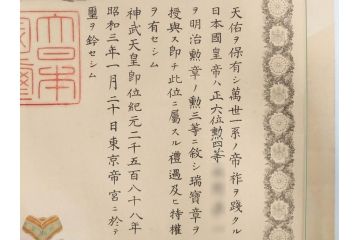 天佑ヲ保有シ萬世一系ノ帝祚ヲ踐タル
日本國皇帝ハ正六位勲四等
ヲ明治勲章ノ勲三等ニ敍シ瑞寶章ヲ
授與ス即チ此位ニ屬スル禮遇及ヒ特權
ヲ有セシム
神武天皇即位紀元二千五百八十八年
昭和三年一月二十日東京帝宮ニ於テ
璽ヲ鈐セシム
大日本
國璽